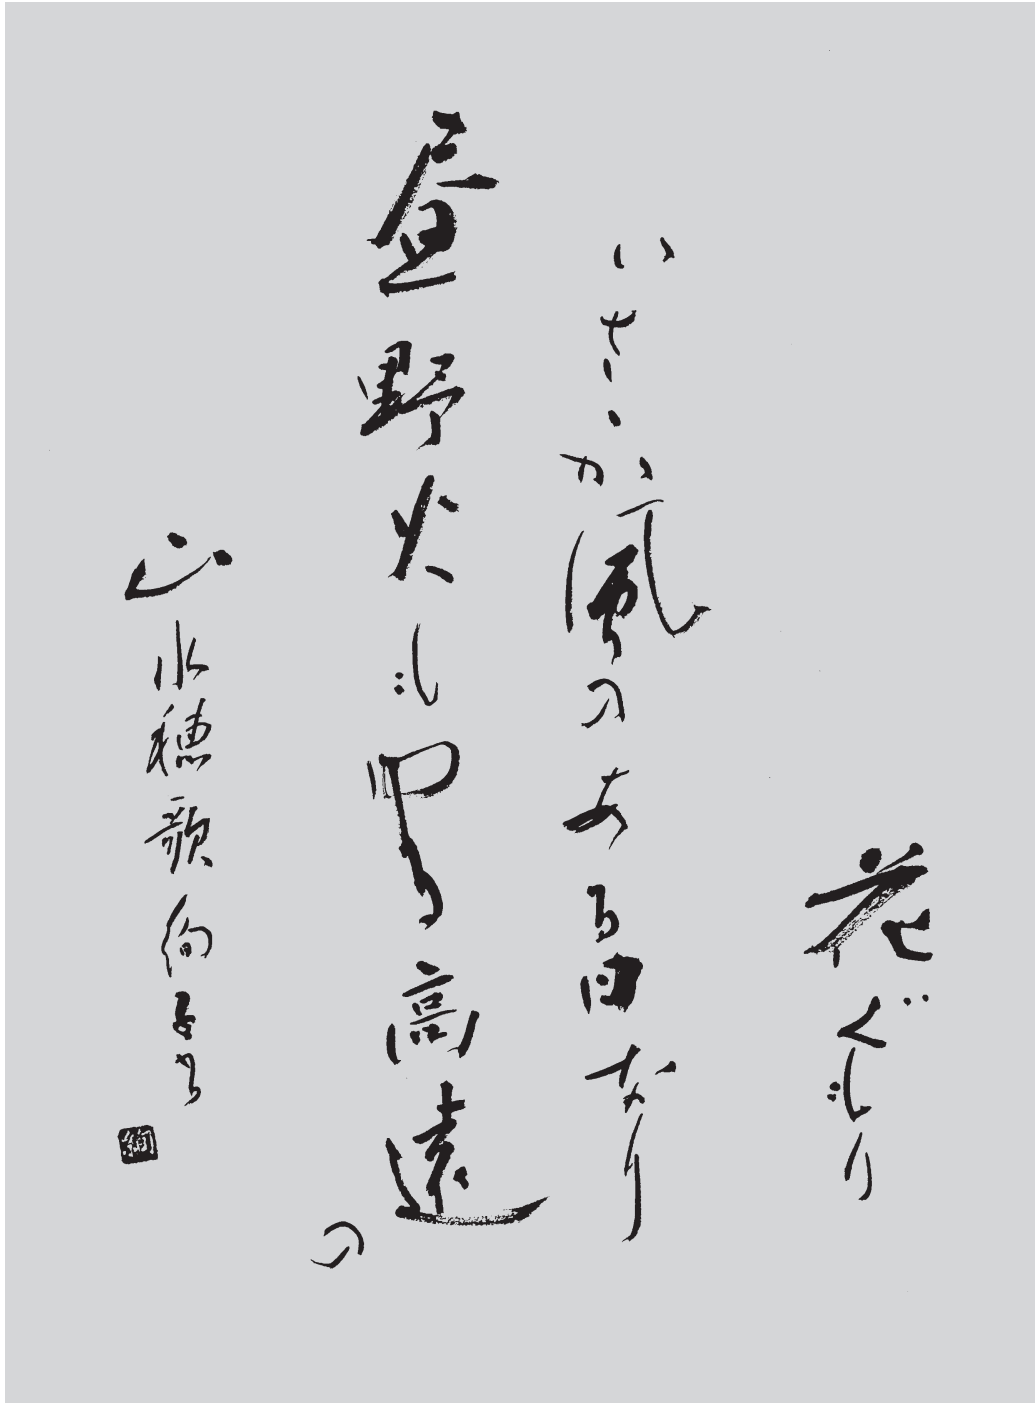 花ぐもり
いさゝか風のある日なり
昼野火もゆる高遠の
山 水穂歌 絢
絢